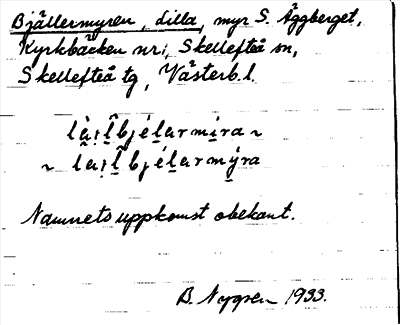 Bjällermyren, lilla, myr S. Äggberget,
Kyrkbäcken nr 1, Skellefteå sn,
Skellefteå tg, Västerb. l.
bjélarmira ~
bjélarmýra
Namnets uppkomst obekant.
B. Nygren 1933.